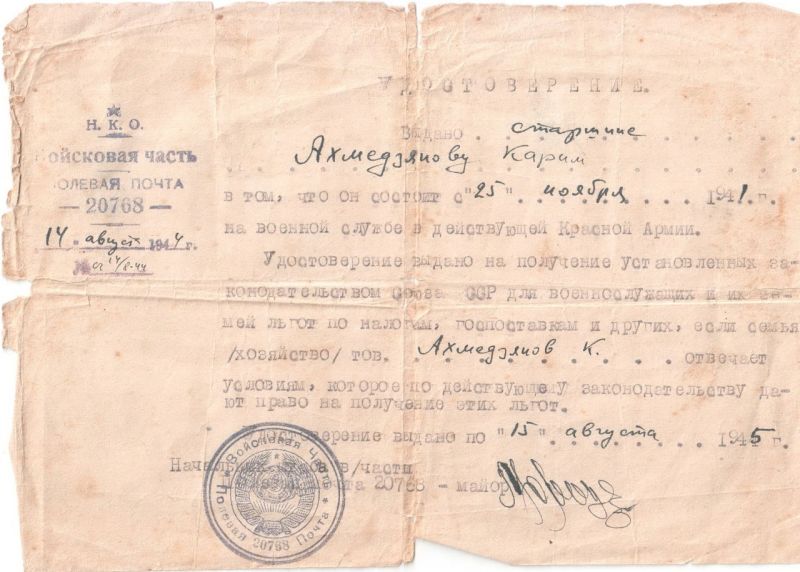 УДОСТОВЕРЕНИЕ.
Н. К. О.
Войсковая часть
ПОЛЕВАЯ ПОЧТА
— 20768 —
14 августа 1944 г.
№
Выдано . старшине
Ахмедзянову Карим
в том, что он состоит с "25" ноября 1941 г.
на военной службе в действующей Красной Армии.
Удостоверение выдано на получение установленных за-
конодательством Союза ССР для военнослужащих и их се-
мей льгот по налогам, госпоставкам и других, если семья
/хозяйство/ тов. Ахмедзянов К. отвечает
условиям, которое по действующему законодательству да-
ют право на получение этих льгот.
Удостоверение выдано по "15" августа 1945 г.
Начальник штаба в/части
полевая почта 20768 - майор
Войсковая Часть
Полевая 20768 Почта